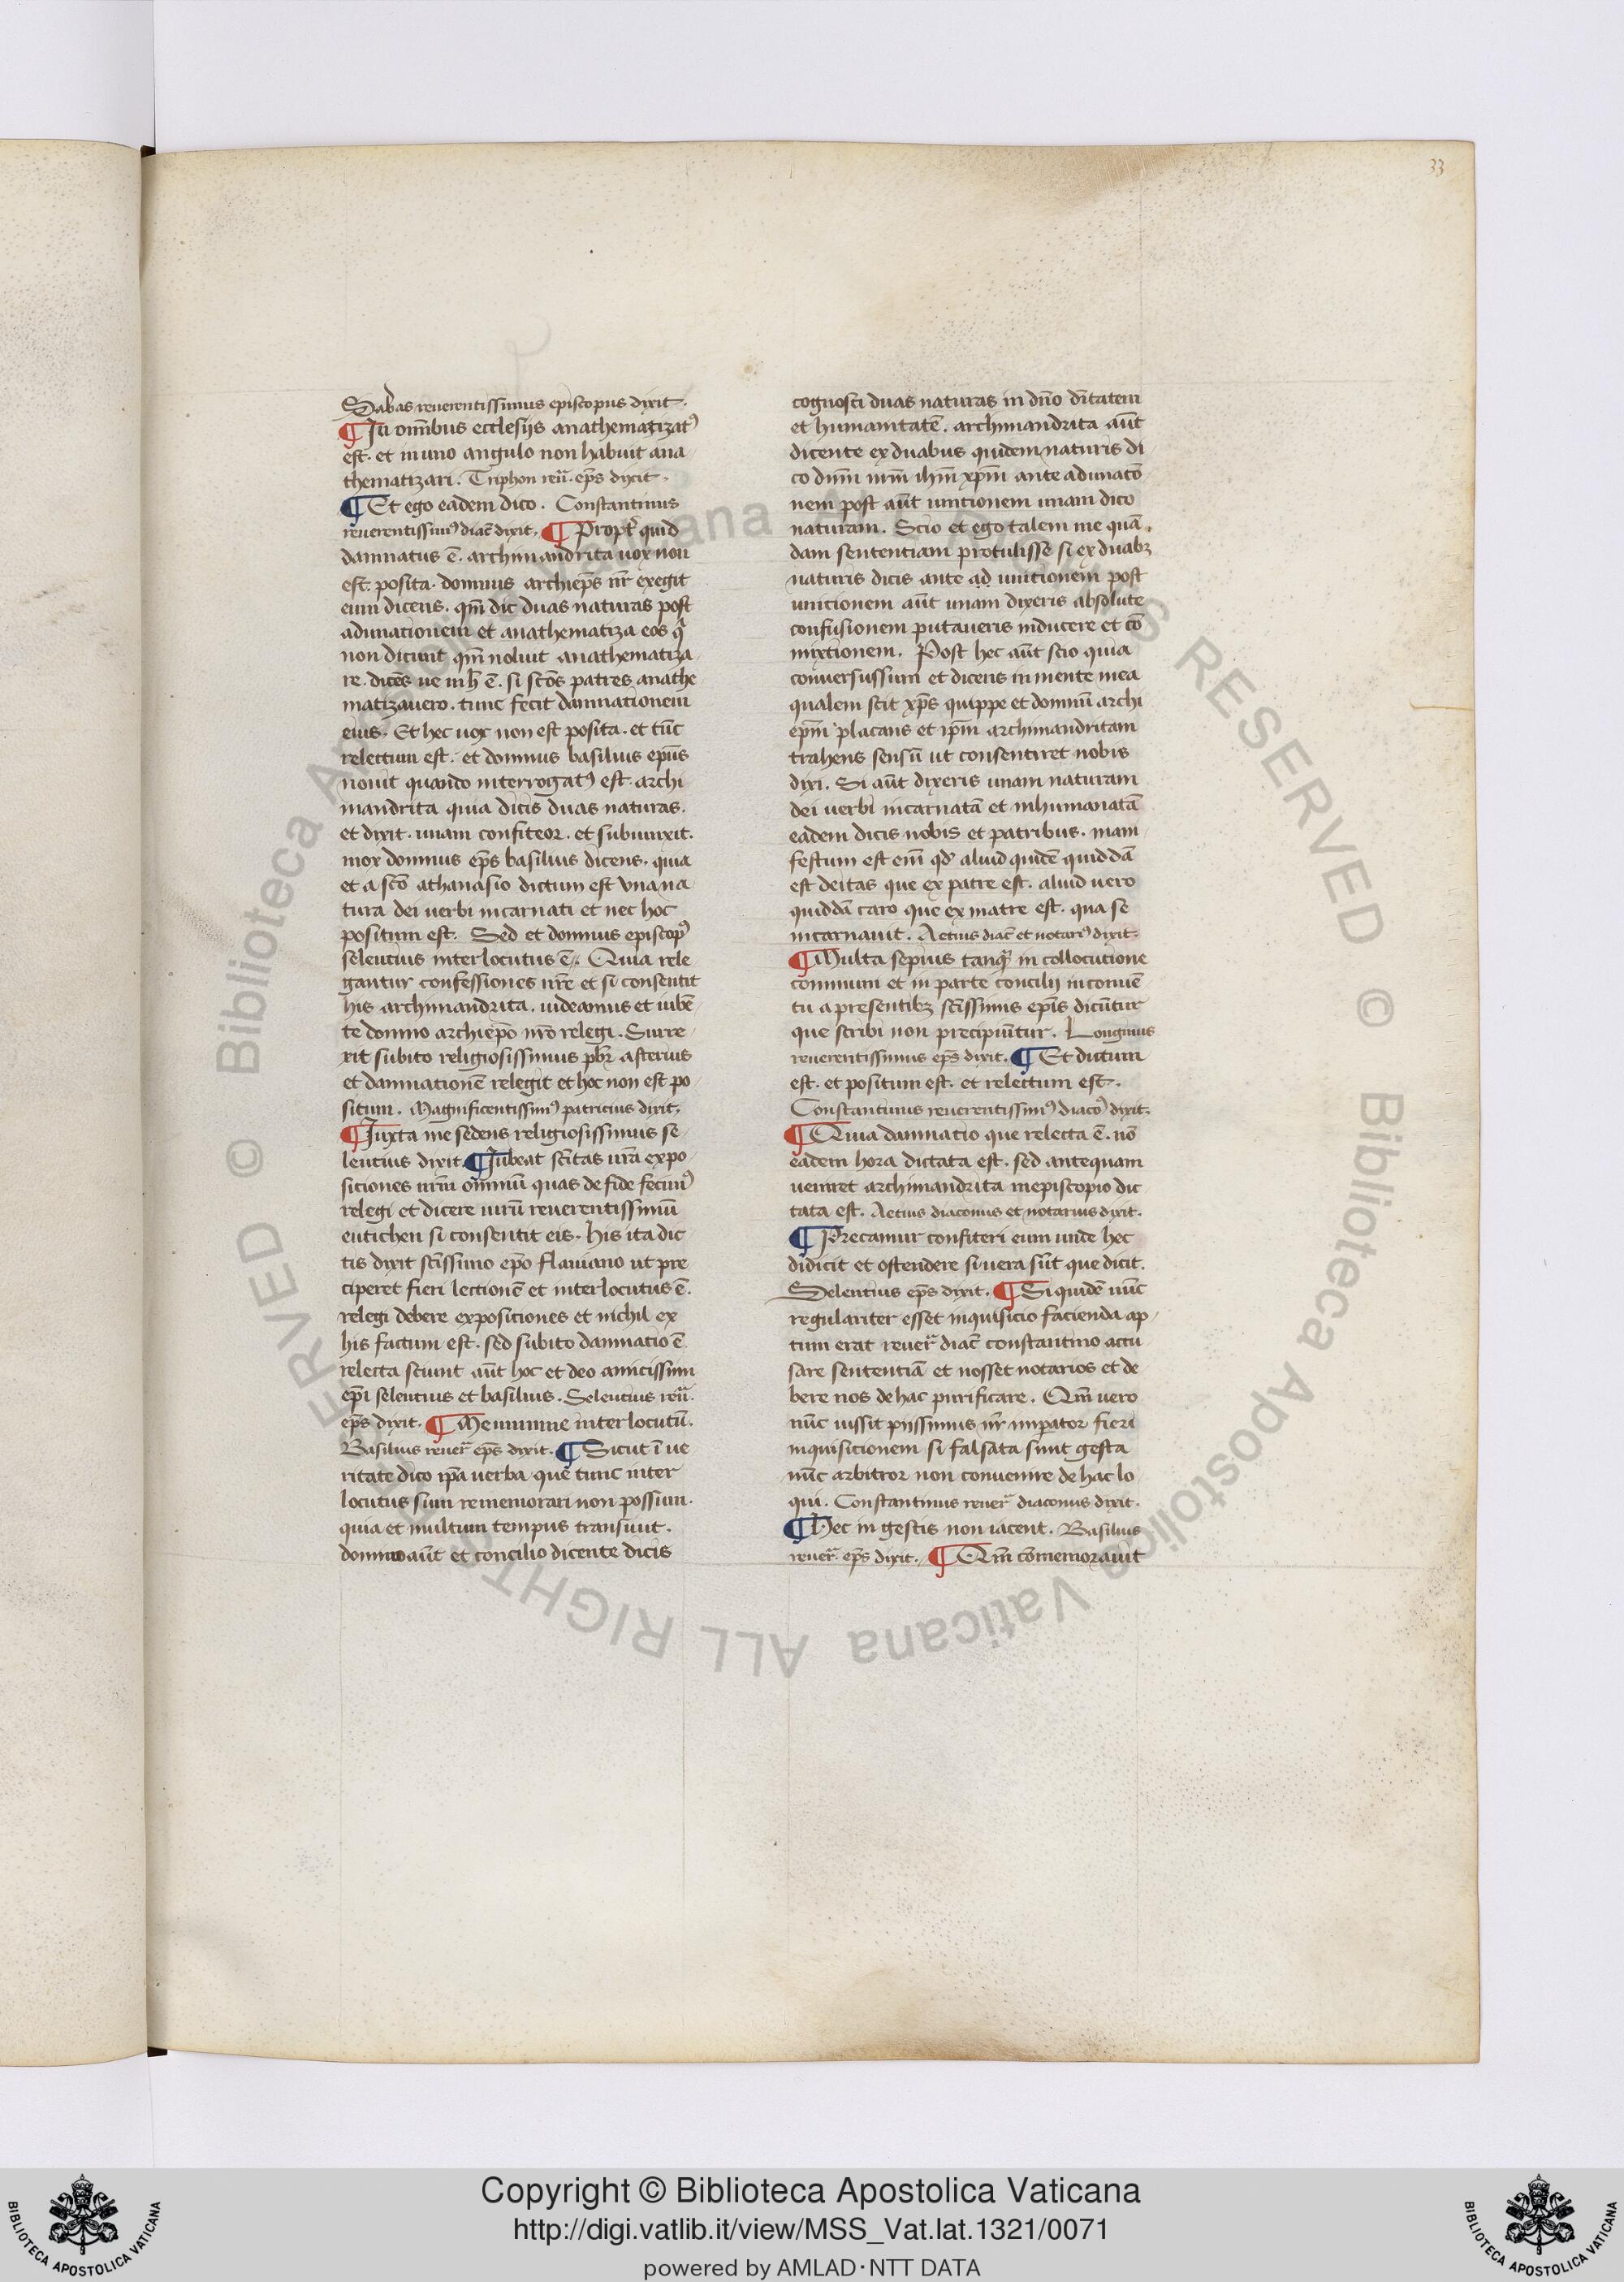 33
Sabas reuerentissimus episcopus dixit.
¶ In om̄ibus ecclesijs anathematizatꝰ
est. et in uno angulo non habuit ana
thematizari. Triphon reu̅. ep̄s dixit.
¶ Et ego eadem dico. Constantinus
reuerentissimꝰ diac̄ dixit. ¶ Propt̄ quid
damnatus ē. archimandrita uox non
est posita. domnus archiep̄s nr̄ exegit
eum dicens. qm̄ dic duas naturas post
adunationem et anathematiza eos q̄
non dicunt qm̄ noluit anathematiza
re. dicēs ue m̄h ē. si sc̄os patres anathe
matizauero. tunc fecit damnationem
eius. Et hec uox non est posita. et tūc
relectum est. et domnus basilius epūs
nouit quando interrogatꝰ est archi
mandrita quia dicis duas naturas.
et dixit. unam confiteor. et subiunxit.
mox domnus ep̄s basilius dicens. quia
et a sc̄o athanasio dictum est vna na
tura dei uerbi incarnati et nec hoc
positum est. Sed et domnus episcopꝰ
seleucius interlocutus ē. Quia rele
gantur confessiones nr̄e et si consentit
his archimandrita. uideamus et iubē
te domno archiep̄o nr̄o relegi. Surre
xit subito religiosissimus pb̄r asterius
et damnationē relegit et hoc non est po
situm. Magnificentissimꝰ patricius dixit.
¶ Iuxta me sedens religiosissimus se
leucius dixit. ¶ Iubeat sc̄itas ur̄a expo
siciones nr̄m omniū quas de fide fecimꝰ
relegi et dicere uirū reuerentissimū
eutichen si consentit eis. his ita dic
tis dixit sc̄issimo ep̄o flauiano ut pre
ciperet fieri lectionē et interlocutus ē.
relegi debere exposiciones et nichil ex
his factum est. sed subito damnatio ē
relecta sciunt aūt hoc et deo amicissimi
ep̄i seleucius et basilius. Seleucius reu̅.
ep̄s dixit. ¶ Memini me interlocutū.
Basilius reuer̄ ep̄s dixit. ¶ Sicut ī ue
ritate dico ip̄a uerba que tunc inter
locutus sum rememorari non possum.
quia et multum tempus transiuit.
domno aūt et concilio dicente dicis
cognosci duas naturas in dn̄o d̄itatem
et humanitatē. archimandrita aūt
dicente ex duabus quidem naturis di
co dnm̄ nrm̄ ihm̄ xpm̄ ante adunatō
nem post aūt unitionem unam dico
naturam. Scio et ego talem me quā
dam sententiam protulisse si ex duabꝫ
naturis dicis ante ad unitionem post
unitionem aūt unam dixeris absolute
confusionem putaueris inducere et cō
mixtionem. Post hec aūt scio quia
conuersus sum et dicens in mente mea
qualem scit xp̄s quippe et domnū archi
ep̄m placans et ip̄m archimandritam
trahens sensū ut consentiret nobis
dixi. Si aūt dixeris unam naturam
dei uerbi incarnatā et inhumanatā
eadem dicis nobis et patribus. mani
festum est em̄ qd̄ aliud quidē quiddā
est deitas que ex patre est. aliud uero
quiddā caro que ex matre est. qua se
incarnauit. Aetius diac̄ et notariꝰ dixit.
¶ Multa sepius tanq̄ in collocutione
communi et in parte concilij in conuē
tu a presentibꝫ sc̄issimis ep̄is dicūtur
que scribi non precipiūtur. Longinus
reuerentissimus ep̄s dixit. ¶ Et dictum
est. et positum est. et relectum est.
Constantinus reuerentissimꝰ diacoꝰ dixit.
¶ Quia damnatio que relecta ē. nō
eadem hora dictata est. sed antequam
ueniret archimandrita in episcopio dic
tata est. Aetius diaconus et notarius dixit.
¶ Precamur confiteri eum unde hec
didicit et ostendere si uera sūt que dicit.
Seleucius ep̄s dixit. ¶ Siquidē nūc
regulariter esset inquisicio facienda ap
tum erat reuer̄ diac̄ constantino accu
sare sententiā et nosset notarios et de
bere nos de hac purificare. Qm̄ uero
nūc iussit pijssimus nr̄ imꝑator fieri
inquisicionem si falsata sunt gesta
nūc arbitror non conuenire de hac lo
qui. Constantinus reuer̄ diaconus dixit.
¶ Hec in gestis non iacent. Basilius
reuer̄. ep̄s dixit. ¶ Qm̄ cōmemorauit
Copyright © Biblioteca Apostolica Vaticana
http://digi.vatlib.it/view/MSS_Vat.lat.1321/0071
powered by AMLAD·NTT DATA